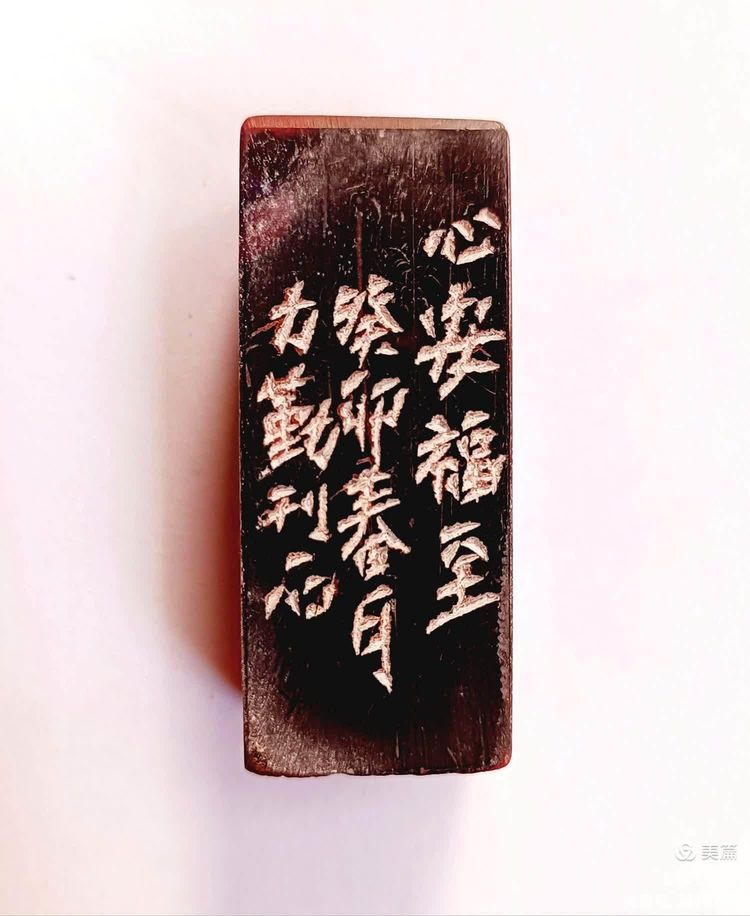 心安福至
癸卯春月
力勤刊石
美篇